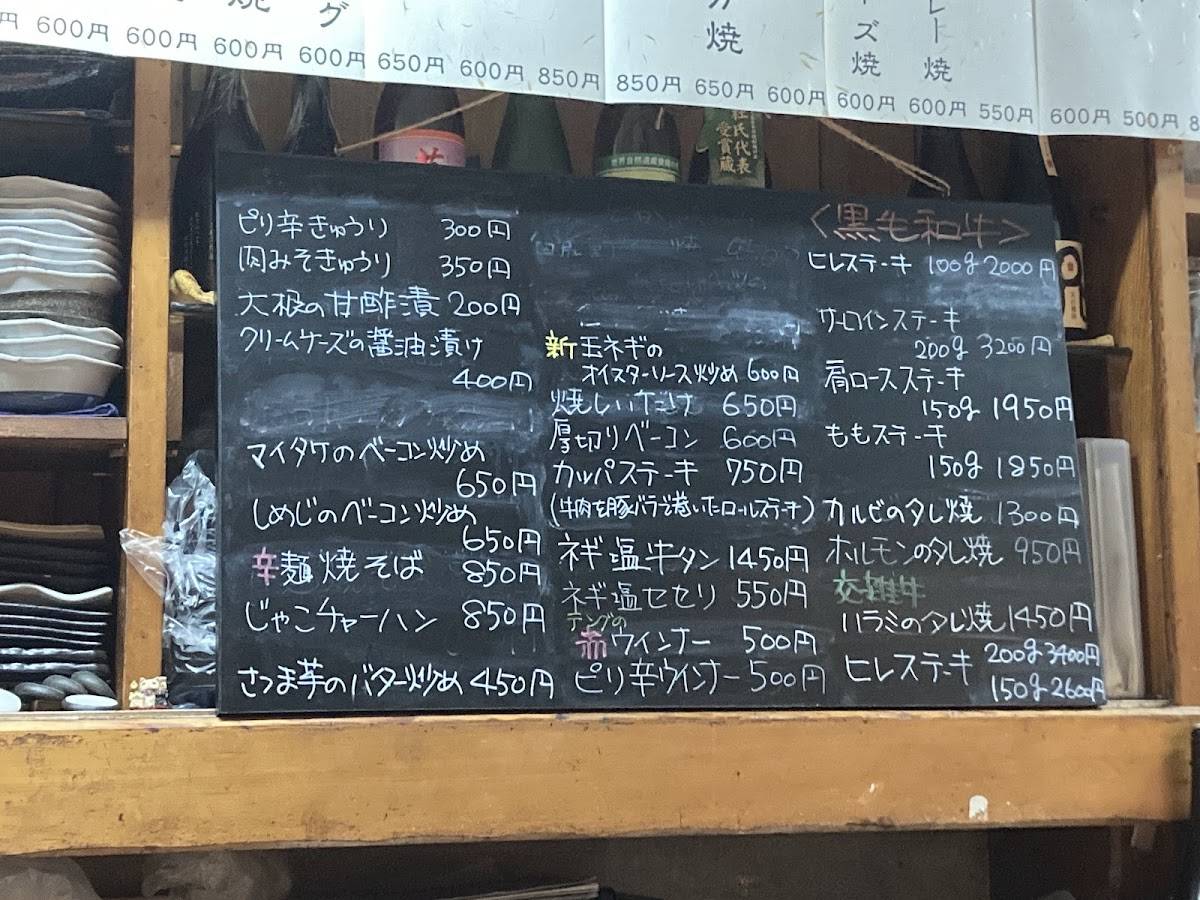 焼
グ
カ
焼
ズ
焼
レ
ト
焼
600円 600円 600円 600円 650円 600円 850円 850円 650円 600円 600円 600円 550円 600円 500円
杜氏代表
受賞蔵
ピリ辛きゅうり 300円
肉みそきゅうり 350円
大根の甘酢漬 200円
クリームチーズの醤油漬け
400円
マイタケのベーコン炒め
650円
しめじのベーコン炒め
650円
辛麺焼そば 850円
じゃこチャーハン 850円
さつま芋のバター炒め 450円
新玉ネギの
オイスターソース炒め 600円
焼しいたけ 650円
厚切りベーコン 600円
カッパステーキ 750円
(牛肉を豚バラで巻いたロールステーキ)
ネギ塩牛タン 1450円
ネギ塩セセリ 550円
テングの
赤ウインナー 500円
ピリ辛ウインナー 500円
<黒毛和牛>
ヒレステーキ 100g 2000円
サーロインステーキ
200g 3200円
肩ロースステーキ
150g 1950円
ももステーキ
150g 1850円
カルビのタレ焼 1300円
ホルモンのタレ焼 950円
交雑牛
ハラミのタレ焼 1450円
ヒレステーキ 200g 3400円
150g 2600円